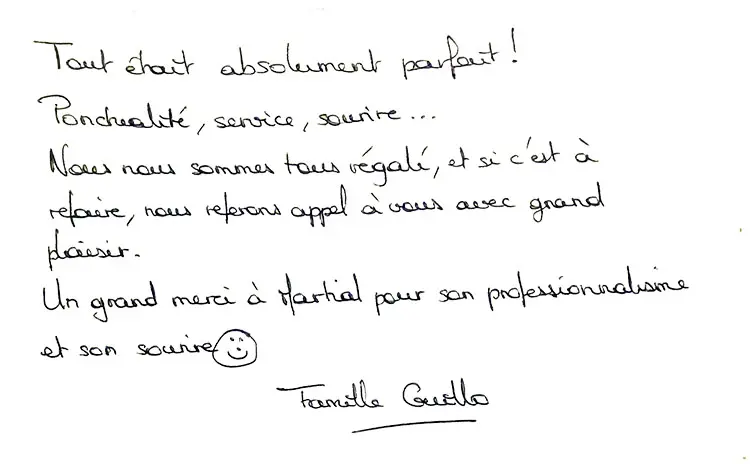 Tout était absolument parfait !
Ponctualité, service, sourire...
Nous nous sommes tous régalé, et si c'est à
refaire, nous referons appel à vous avec grand
plaisir.
Un grand merci à Martial pour son professionnalisme
et son sourire ☺
Famille Guillo